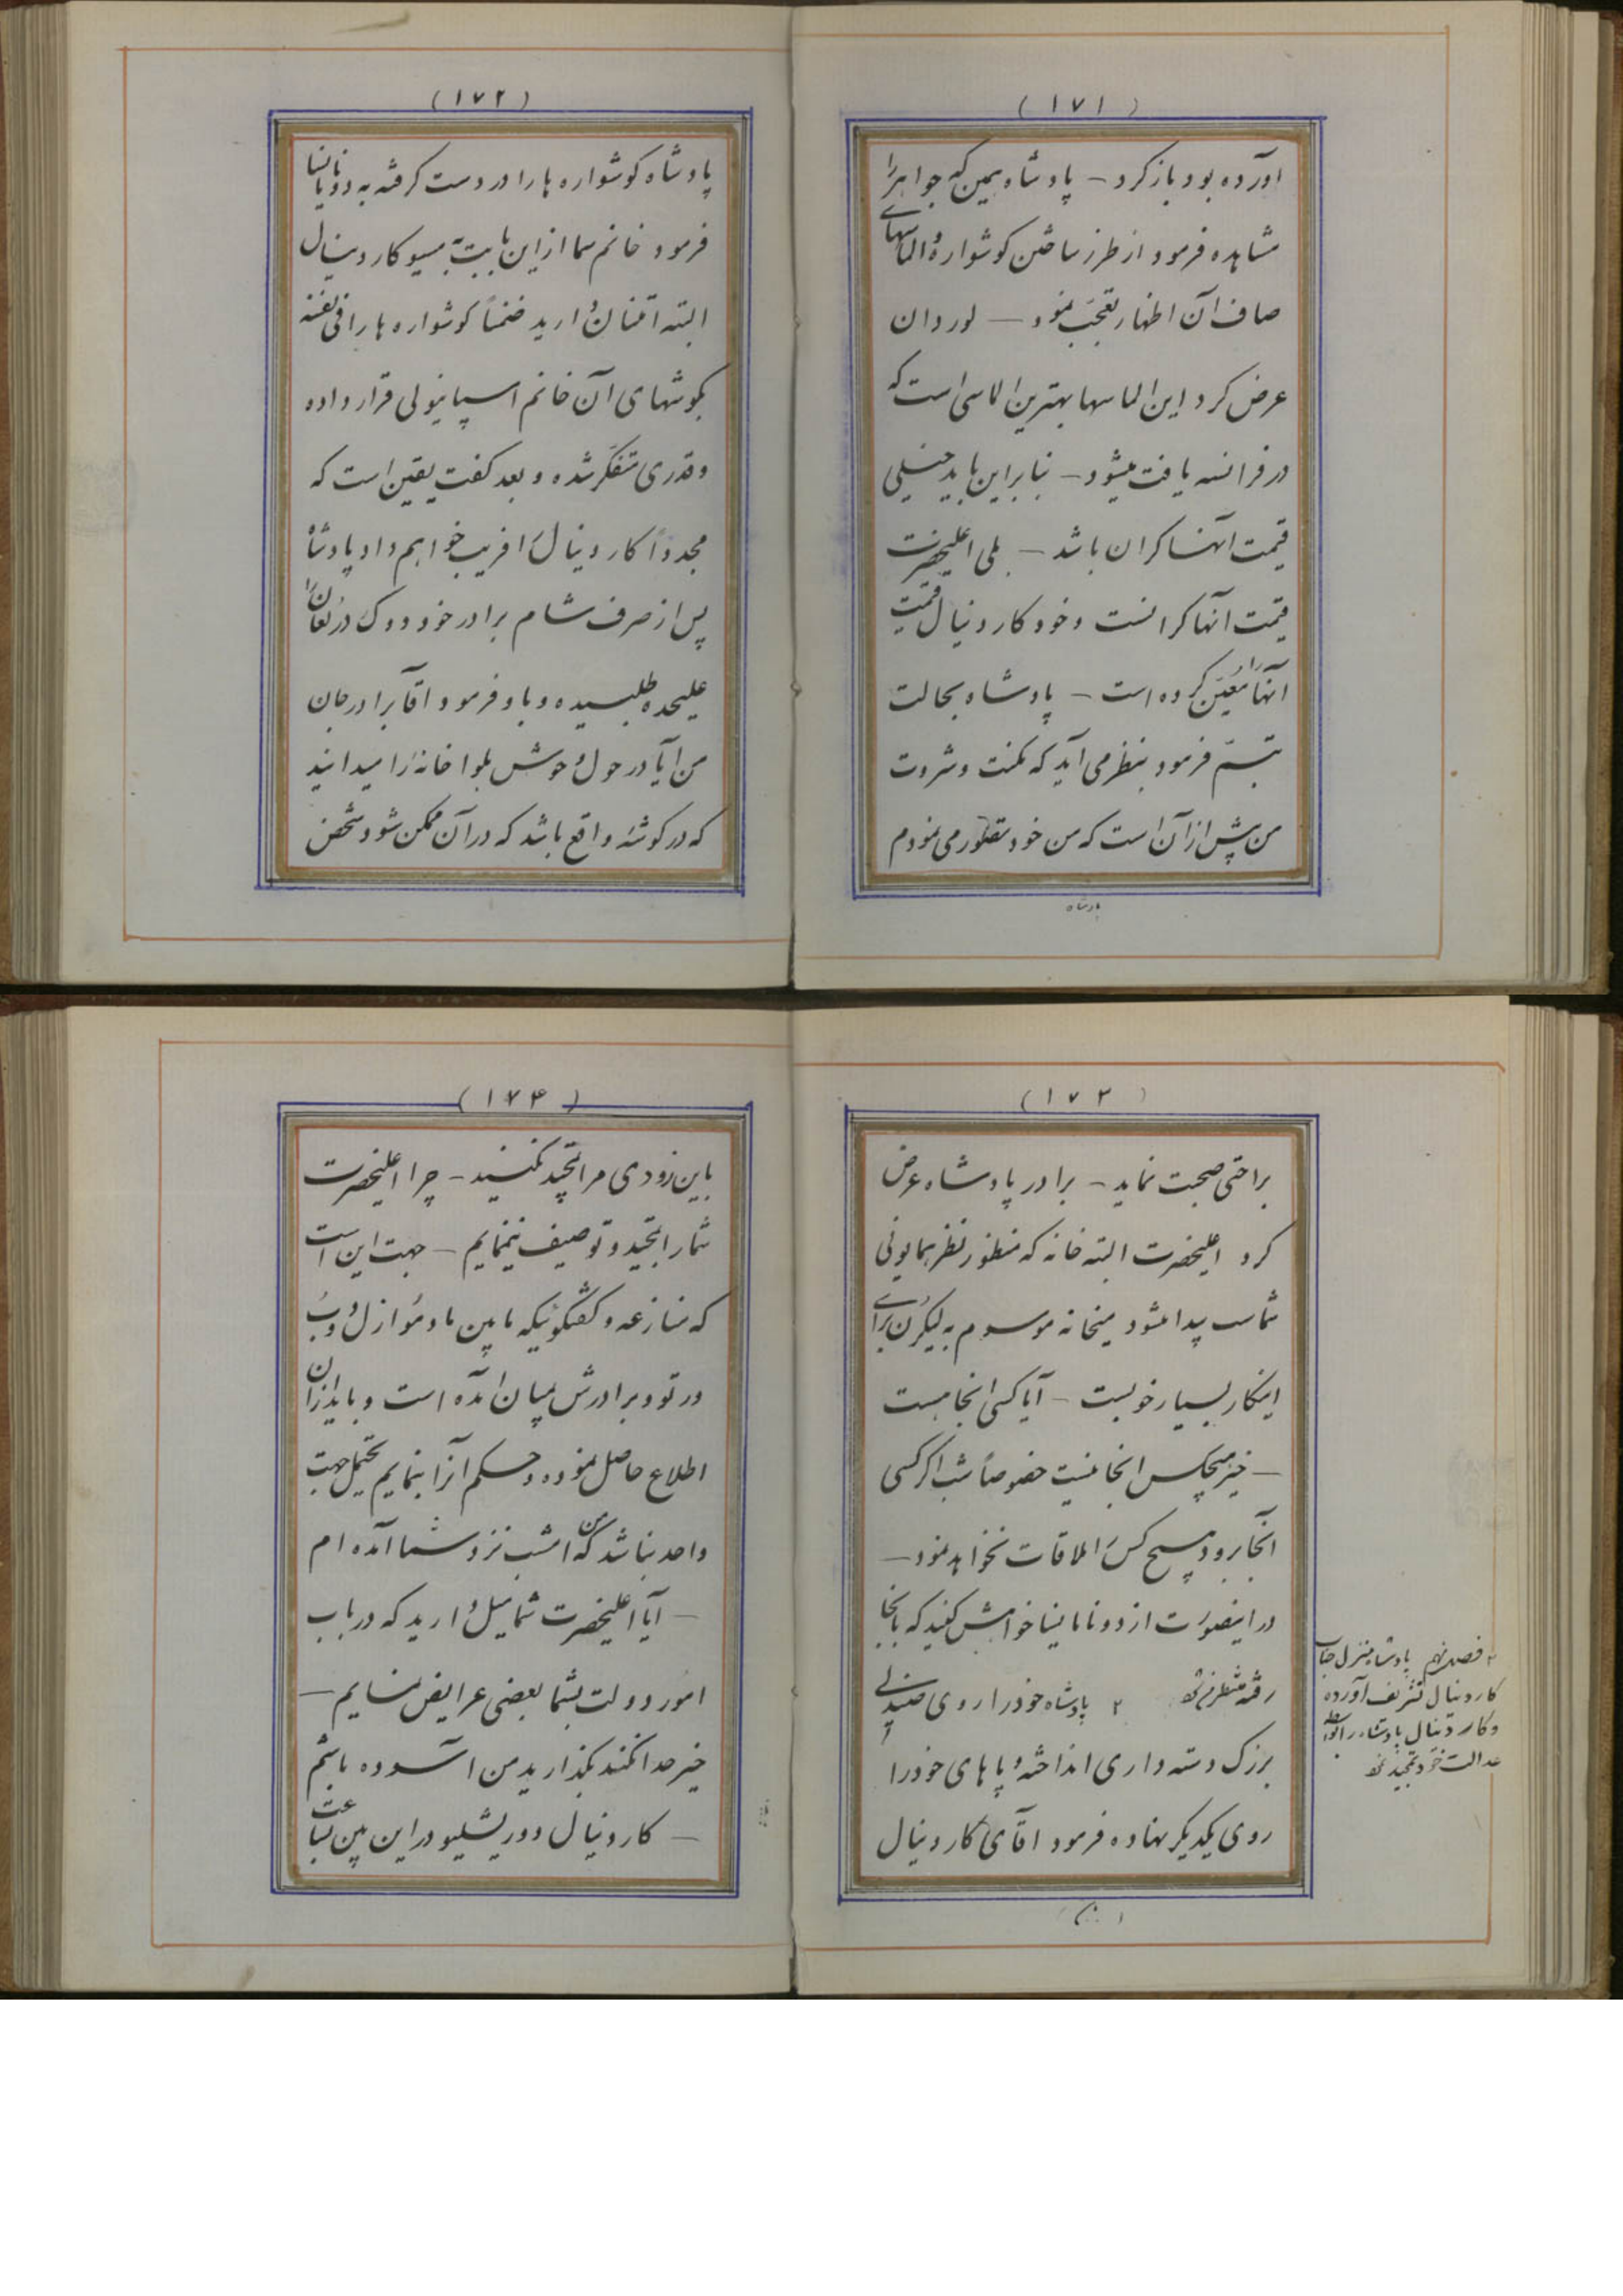 (۱۷۱)
آورده بود باز کرد – پادشاه همین که جواهر را
مشاهده فرمود از طرز ساختن گوشواره و الماسهای
صاف آن اظهار تعجب نمود – لوردان
عرض کرد این الماسها بهترین الماسی است که
در فرانسه یافت میشود – بنابراین باید خیلی
قیمت آنها گران باشد – بلی اعلیحضرت
قیمت آنها گرانست و خود کاردینال قیمت
آنها را معین کرده است – پادشاه بحالت
تبسم فرمود بنظر می آید که مکنت و ثروت
من بیش از آن است که من خود تصور می نمودم
پادشاه
(۱۷۲)
پادشاه گوشواره ها را در دست گرفته به دونا نانسا
فرمود خانم شما از این بابت به مسیو کاردینال
البته امتنان دارید ضمناً گوشواره ها را فی نفسه
بگوشهای آن خانم اسپانیولی قرار داده
و قدری متفکر شده و بعد گفت یقین است که
مجدداً کاردینال را فریب خواهم داد پادشاه
پس از صرف شام برادر خود دوک درلئان را
علیحده طلبیده و باو فرمود آقا برادر جان
من آیا در حول و حوش بلوا خانه را میدانید
که در گوشه واقع باشد که در آن ممکن شود شخص
(۱۷۳)
براحتی صحبت نماید – برادر پادشاه عرض
کرد اعلیحضرت البته خانه که منظور نظر همایونی
شماست پیدا میشود میخانه موسوم به لیکرن برای
اینکار بسیار خوبست – آیا کسی آنجا هست
– خیر هیچکس آنجا نیست خصوصاً شب اگر کسی
آنجا برود هیچ کس را ملاقات نخواهد نمود –
در اینصورت از دونا مانسیا خواهش کنید که بآنجا
رفته منتظر من شود ۲ پادشاه خود را روی صندلی
بزرگ دسته داری انداخته و پاهای خود را
روی یکدیگر نهاده فرمود آقای کاردینال
۲ فصل نهم پادشاه بمنزل جناب
کاردینال تشریف آورده
و کاردینال پادشاه را بواسطه
عدالت خود تمجید نمود
(۱۷۴)
باین زودی مرا تمجید نکنید – چرا اعلیحضرت
شما را تمجید و توصیف ننمایم – جهت این است
که منازعه و گفتگوئیکه مابین مادموازل دوب
در تو و برادرش بمیان آمده است و باید از آن
اطلاع حاصل نموده و حکم آنرا بنمایم محتمل جهت
واحد نباشد که من امشب نزد شما آمده ام
– آیا اعلیحضرت شما میل دارید که در باب
امور دولت بشما بعضی عرایض نمایم –
خیر خدا نکند بگذارید من آسوده باشم
– کاردینال دوریشلیو در این بین بساعت